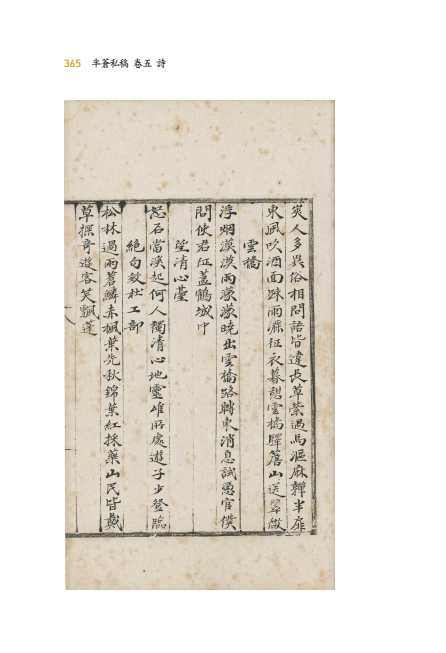 365 半蒼私稿 卷五 詩
人多異俗相問語皆違長草縈過馬溫麻韡半扉
東風吹酒面踈雨濕征衣暮憩雲橋驛蒼山送翠微
雲橋
浮烟漠漠雨濛濛曉出雲橋路轉東消息試憑官僕
問使君征蓋鶴城中
望清心臺
怒石當溪起何人獨清心地靈唯所處遊子步登臨
絶句效杜工部
松林過雨蒼鱗赤楓葉先秋錦葉紅採藥山民皆戴
草探奇遊客笑飄蓬